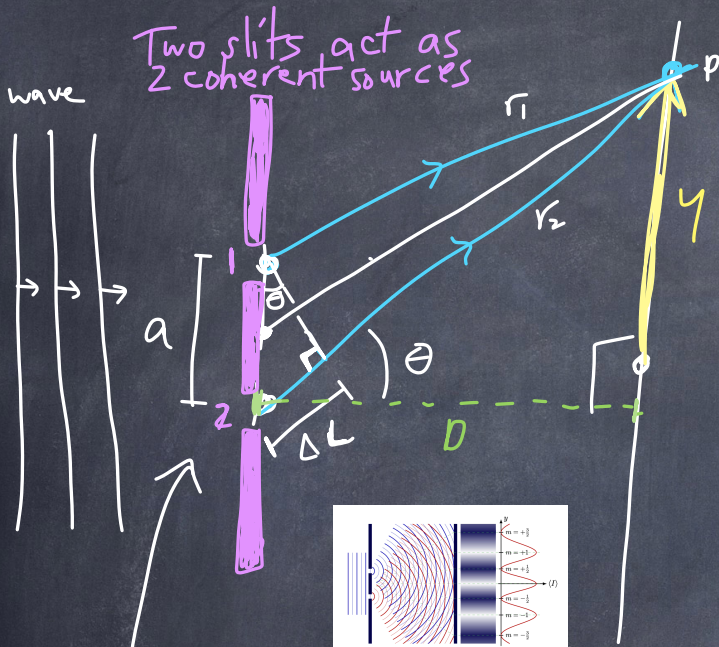 Two slits act as
2 coherent sources
wave
P
r₁
y
r₂
1
θ
a
θ
2
ΔL
D
y
m = +3/2
m = +1
m = +1/2
⟨I⟩
m = -1/2
m = -1
m = -3/2